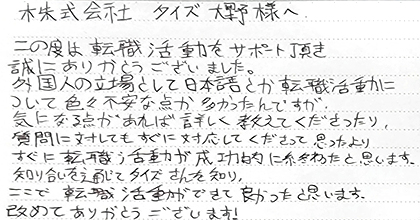 株式会社 タイズ 大野様へ
この度は転職活動をサポート頂き
誠にありがとうございました。
外国人の立場として日本語とか転職活動に
ついて色々不安な点が多かったんですが、
気になる点があれば詳しく教えてくださったり、
質問に対してもすぐに対応してくださって思ったより
すぐに転職活動が成功的に終わったと思います。
知り合いを通じてタイズさんを知り、
ここで転職活動ができて良かったと思います。
改めてありがとうございます!